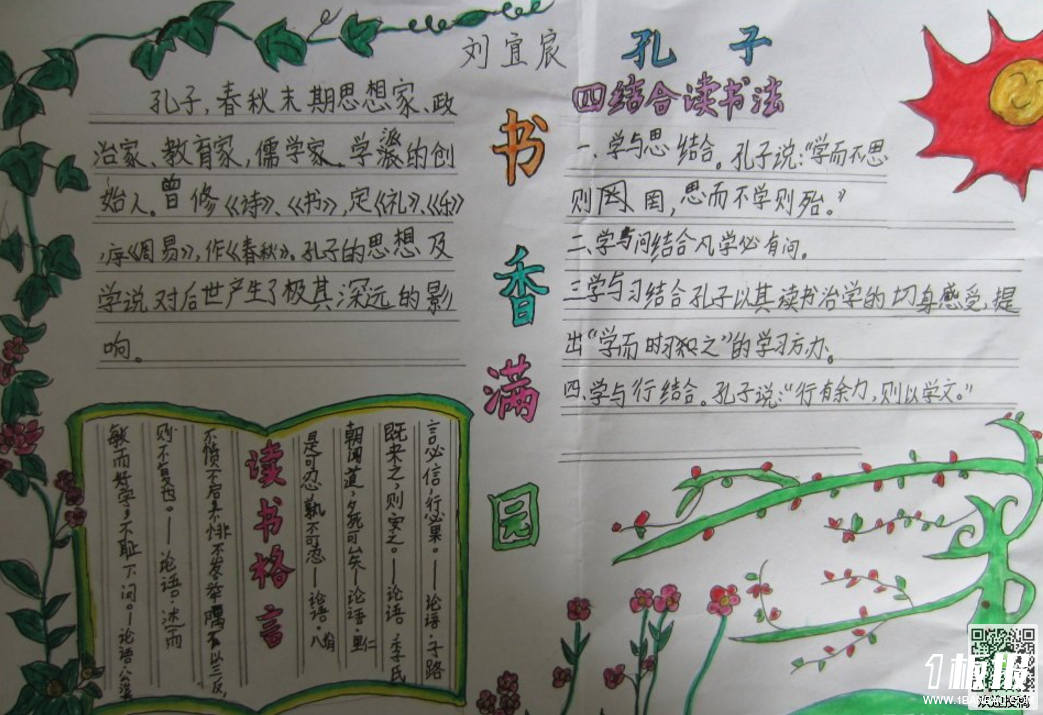 刘宜宸
孔子，春秋末期思想家、政
治家、教育家，儒学家、学派的创
始人。曾修《诗》、《书》，定《礼》、《乐》
，序《周易》，作《春秋》。孔子的思想及
学说对后世产生了极其深远的影
响。
书香满园
孔子
四结合读书法
一、学与思结合。孔子说：“学而不思
则罔，思而不学则殆。”
二、学与问结合凡学必有问。
三学与习结合孔子以其读书治学的切身感受，提
出“学而时习之”的学习方办。
四、学与行结合。孔子说：“行有余力，则以学文。”
言必信，行必果。——论语·子路
既来之，则安之。——论语·季氏
朝闻道，夕死可矣—论语·里仁
是可忍孰不可忍—论语·八佾
读书格言
不愤不启，不悱不发举隅不以三反，
则不复也。——论语·述而
敏而好学，不耻下问。—论语·公
1板报